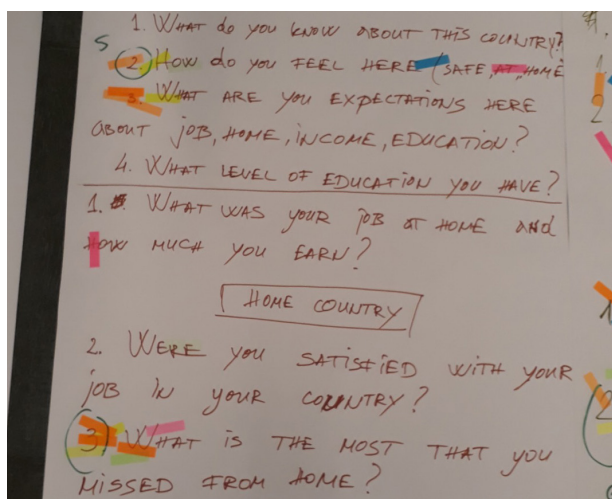 1. WHAT do you KNOW ABOUT THIS COUNTRY?
S
2. HOW do you FEEL HERE (SAFE, AT, HOME
3. WHAT ARE YOU EXPECTATIONS HERE
ABOUT JOB, HOME, INCOME, EDUCATION?
4. WHAT LEVEL OF EDUCATION YOU HAVE?
1. WHAT WAS YOUR JOB AT HOME AND
HOW MUCH YOU EARN?
HOME COUNTRY
2. WERE YOU SATISFIED WITH YOUR
JOB IN YOUR COUNTRY?
3. WHAT IS THE MOST THAT YOU
MISSED FROM HOME?
1.
2
2